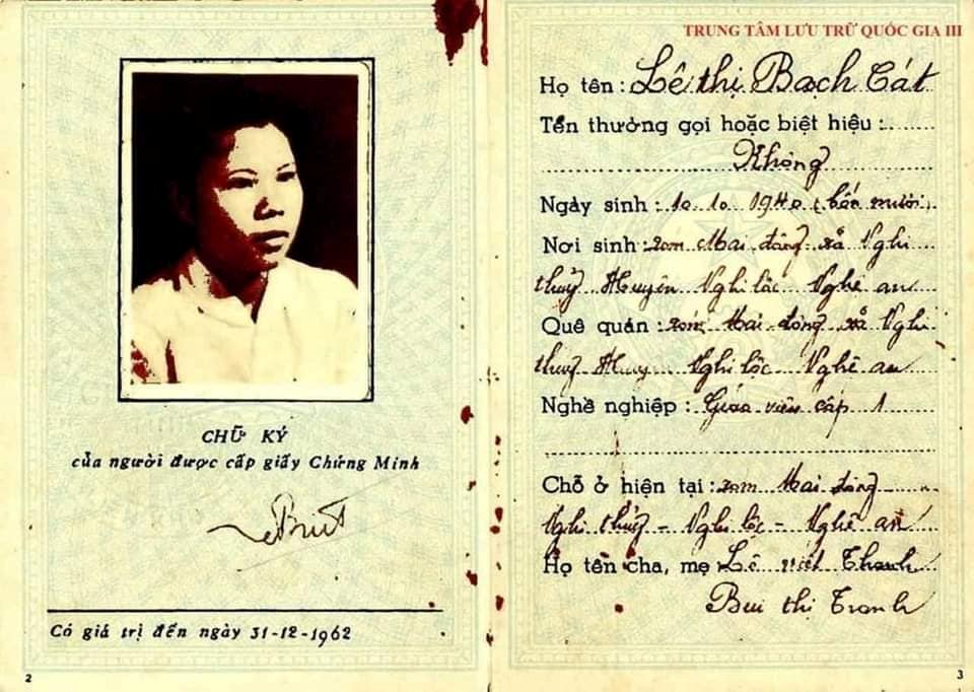 CHỮ KÝ
của người được cấp giấy Chứng Minh
Có giá trị đến ngày 31-12-1962
2
TRUNG TÂM LƯU TRỮ QUỐC GIA III
Họ tên: Lê thị Bạch Cát
Tên thường gọi hoặc biệt hiệu:
Không
Ngày sinh: 10.10.1940 (bốn mươi)
Nơi sinh: xóm Mai đông xã Nghi
thuỷ Huyện Nghi lộc Nghệ an
Quê quán: xóm Mai đông xã Nghi
thuỷ Huyện Nghi lộc Nghệ an
Nghề nghiệp: Giáo viên cấp 1
Chỗ ở hiện tại: xóm Mai đông
Nghi thuỷ - Nghi lộc - Nghệ an
Họ tên cha, mẹ Lê viết Thanh
Bùi thị Tranh
3